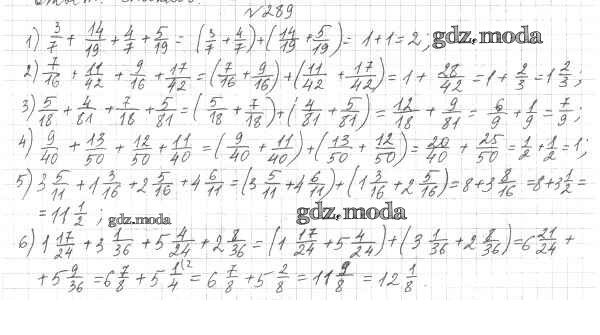 №289
1) 3/7 + 14/19 + 4/7 + 5/19 = (3/7 + 4/7) + (14/19 + 5/19) = 1 + 1 = 2; gdz.moda
2) 7/16 + 11/42 + 9/16 + 17/42 = (7/16 + 9/16) + (11/42 + 17/42) = 1 + 28/42 = 1 + 2/3 = 1 2/3;
3) 5/18 + 4/81 + 7/18 + 5/81 = (5/18 + 7/18) + (4/81 + 5/81) = 12/18 + 9/81 = 6/9 + 1/9 = 7/9;
4) 9/40 + 13/50 + 12/50 + 11/40 = (9/40 + 11/40) + (13/50 + 12/50) = 20/40 + 25/50 = 1/2 + 1/2 = 1;
5) 3 5/11 + 1 3/16 + 2 5/16 + 4 6/11 = (3 5/11 + 4 6/11) + (1 3/16 + 2 5/16) = 8 + 3 8/16 = 8 + 3 1/2 =
= 11 1/2; gdz.moda gdz.moda
6) 1 17/24 + 3 1/36 + 5 4/24 + 2 8/36 = (1 17/24 + 5 4/24) + (3 1/36 + 2 8/36) = 6 21/24 +
+ 5 9/36 = 6 7/8 + 5 1/4 (2 = 6 7/8 + 5 2/8 = 11 9/8 = 12 1/8.